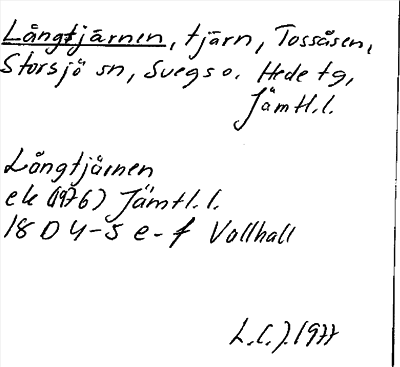 Långtjärnen, tjärn, Tossåsen,
Storsjö sn, Svegs o. Hede tg,
Jämtl.l.
Långtjärnen
ek (1976) Jämtl.l.
18 D 4-5 e-f Vallhall
L.C.J. 1977